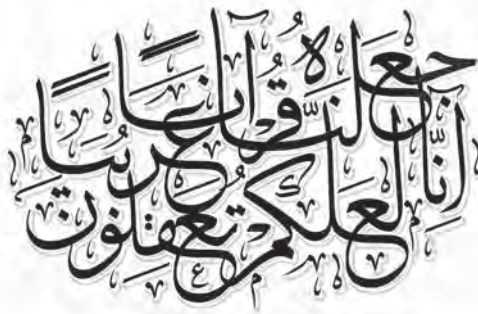 إنا جعلناه قرآنا عربيا لعلكم تعقلون